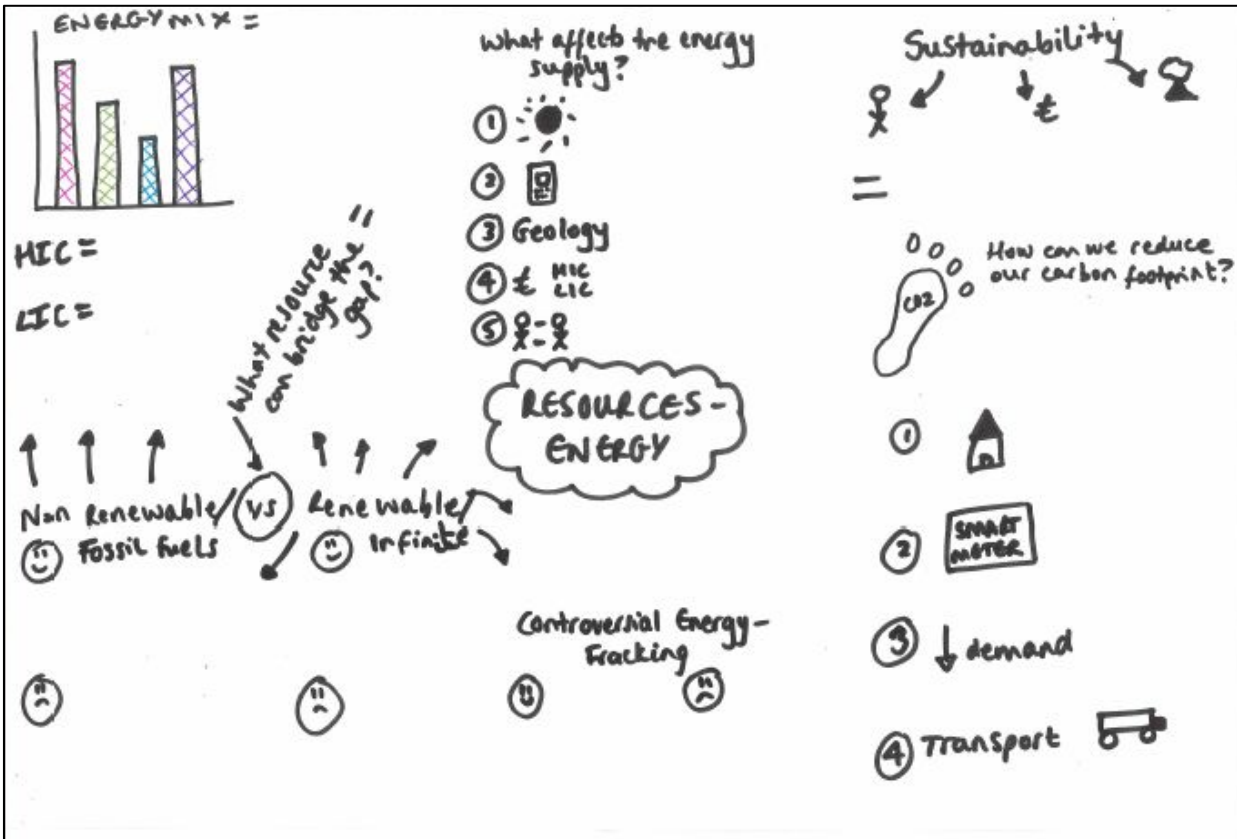 ENERGY MIX =
HIC =
LIC =
What resource
can bridge the
gap? =
Non Renewable/
Fossil fuels
VS
Renewable/
Infinite
What affects the energy
supply?
1
2
3 Geology
4 £ HIC
LIC
5
RESOURCES -
ENERGY
Controversial Energy -
Fracking
Sustainability
£
=
CO2
How can we reduce
our carbon footprint?
1
2 SMART
METER
3 ↓ demand
4 Transport